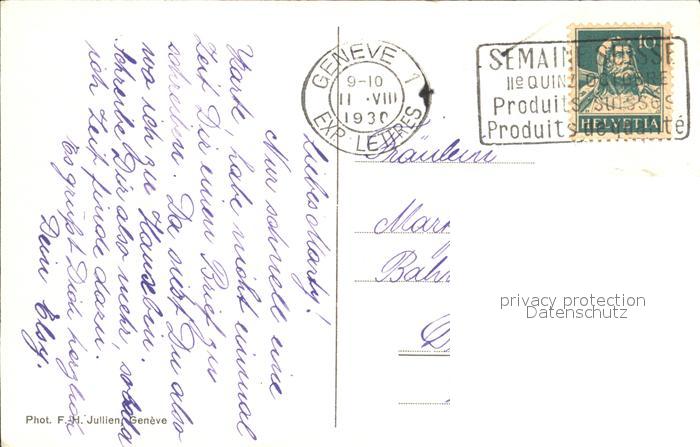 Liebes Marty!
Nur schnell eine
Karte, habe nicht einmal
Zeit Dir einen Brief zu
schreiben. Da siehst Du also
wo ich zu Hause bin.
Schreibe Dir also mehr, sobald
ich Zeit finde dazu.
Es grüsst Dich herzlich
Dein Elsy.
Phot. F. H. Jullien, Genève
GENÈVE 1
9-10
11·VIII
1930
EXP. LETTRES
SEMAINE SUISSE
IIe QUINZ. D'OCTOBRE
Produits suisses
Produits de qualité
10
HELVETIA
Fräulein
privacy protection
Datenschutz